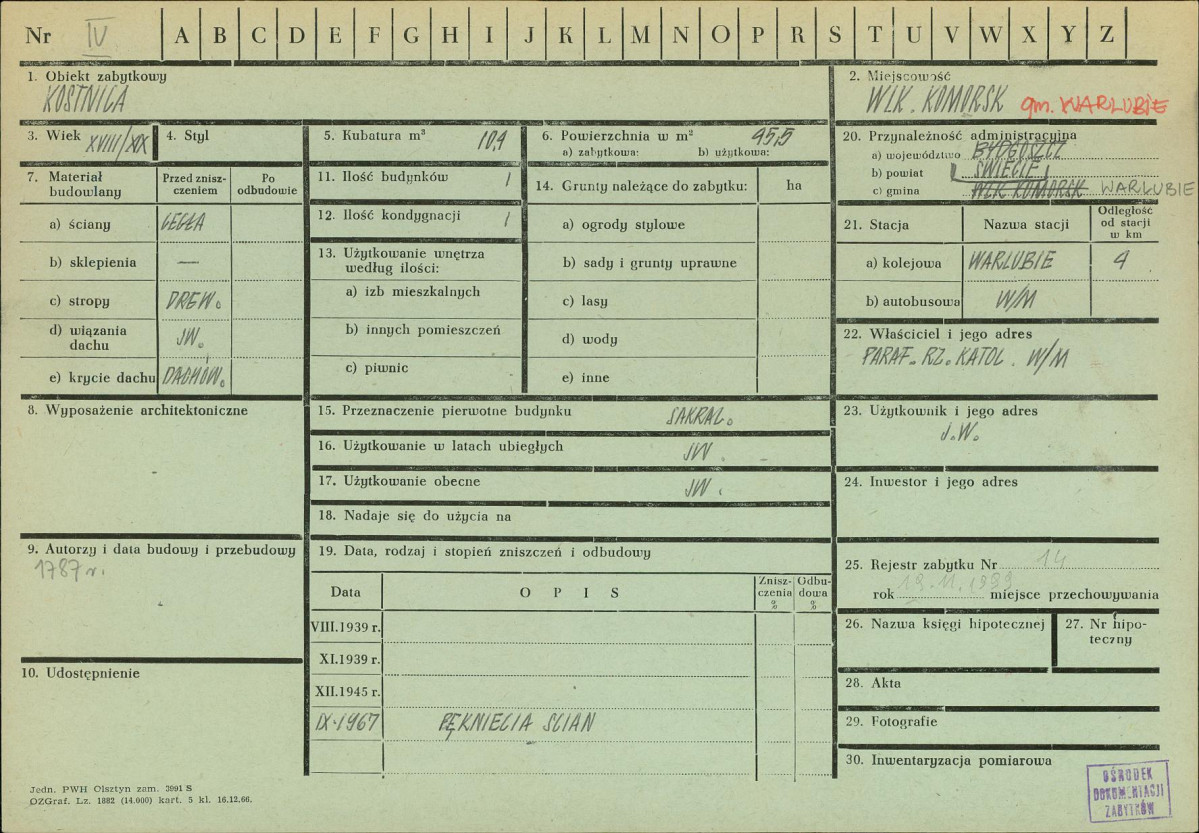 Nr IV A B C D E F G H I J K L M N O P R S T U V W X Y Z
1. Obiekt zabytkowy
KOSTNICA
2. Miejscowość
WLK. KOMORSK gm. WARLUBIE
3. Wiek XVIII/XIX
4. Styl
5. Kubatura m³ 109
6. Powierzchnia w m² 45,5
a) zabytkowa: b) użytkowa:
20. Przynależność administracyjna
a) województwo BYDGOSZCZ
b) powiat ŚWIECIE
c) gmina WLK KOMORSK WARLUBIE
7. Materiał budowlany
Przed znisz-
czeniem
Po
odbudowie
a) ściany CEGŁA
b) sklepienia —
c) stropy DREW.
d) wiązania
dachu JW.
e) krycie dachu DACHÓW.
11. Ilość budynków 1
12. Ilość kondygnacji 1
13. Użytkowanie wnętrza
według ilości:
a) izb mieszkalnych
b) innych pomieszczeń
c) piwnic
14. Grunty należące do zabytku: ha
a) ogrody stylowe
b) sady i grunty uprawne
c) lasy
d) wody
e) inne
21. Stacja Nazwa stacji
Odległość
od stacji
w km
a) kolejowa WARLUBIE 4
b) autobusowa W/M
22. Właściciel i jego adres
PARAF. RZ. KATOL. W/M
8. Wyposażenie architektoniczne
15. Przeznaczenie pierwotne budynku SAKRAL.
16. Użytkowanie w latach ubiegłych JW.
17. Użytkowanie obecne JW.
18. Nadaje się do użycia na
23. Użytkownik i jego adres
J.W.
24. Inwestor i jego adres
9. Autorzy i data budowy i przebudowy
1787 r.
19. Data, rodzaj i stopień zniszczeń i odbudowy
Data OPIS
Znisz-
czenia
%
Odbu-
dowa
%
VIII.1939 r.
XI.1939 r.
XII.1945 r.
IX.1967 PĘKNIECIA SCIAN
10. Udostępnienie
25. Rejestr zabytku Nr 14
rok 19.11.1939 miejsce przechowywania
26. Nazwa księgi hipotecznej
27. Nr hipo-
teczny
28. Akta
29. Fotografie
30. Inwentaryzacja pomiarowa
OŚRODEK
DOKUMENTACJI
ZABYTKÓW
Jedn. PWH Olsztyn zam. 3991 S
OZGraf. Lz. 1882 (14.000) kart. 5 kl. 16.12.66.